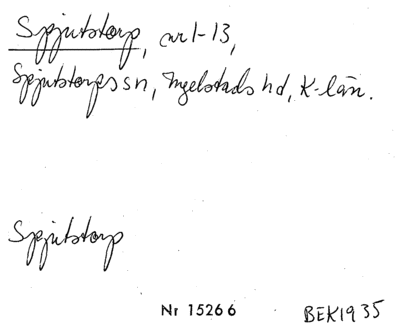 Spjutstorp, nr 1-13,
Spjutstorps sn, Ingelstads hd, K-län.
Spjutstorp
Nr 15266 BEK1935